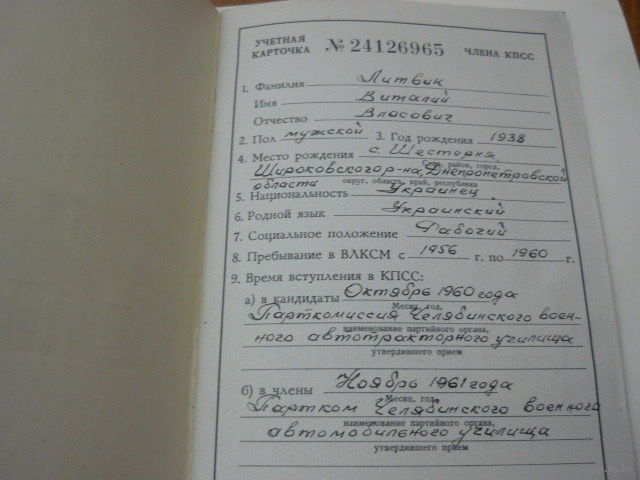 УЧЕТНАЯ КАРТОЧКА № 24126965 ЧЛЕНА КПСС
1. Фамилия Литвин
Имя Виталий
Отчество Власович
2. Пол мужской 3. Год рождения 1938
4. Место рождения с. Шестерня,
село, район, город,
Широковского р-на, Днепропетровской
области округ, область, край, республика
5. Национальность Украинец
6. Родной язык Украинский
7. Социальное положение Рабочий
8. Пребывание в ВЛКСМ с 1956 г. по 1960 г.
9. Время вступления в КПСС:
а) в кандидаты Октябрь 1960 года
Месяц, год,
Парткомиссия Челябинского воен-
наименование партийного органа,
ного автотракторного училища
утвердившего прием
б) в члены Ноябрь 1961 года
Месяц, год,
Партком Челябинского военного
наименование партийного органа,
автомобильного училища
утвердившего прием